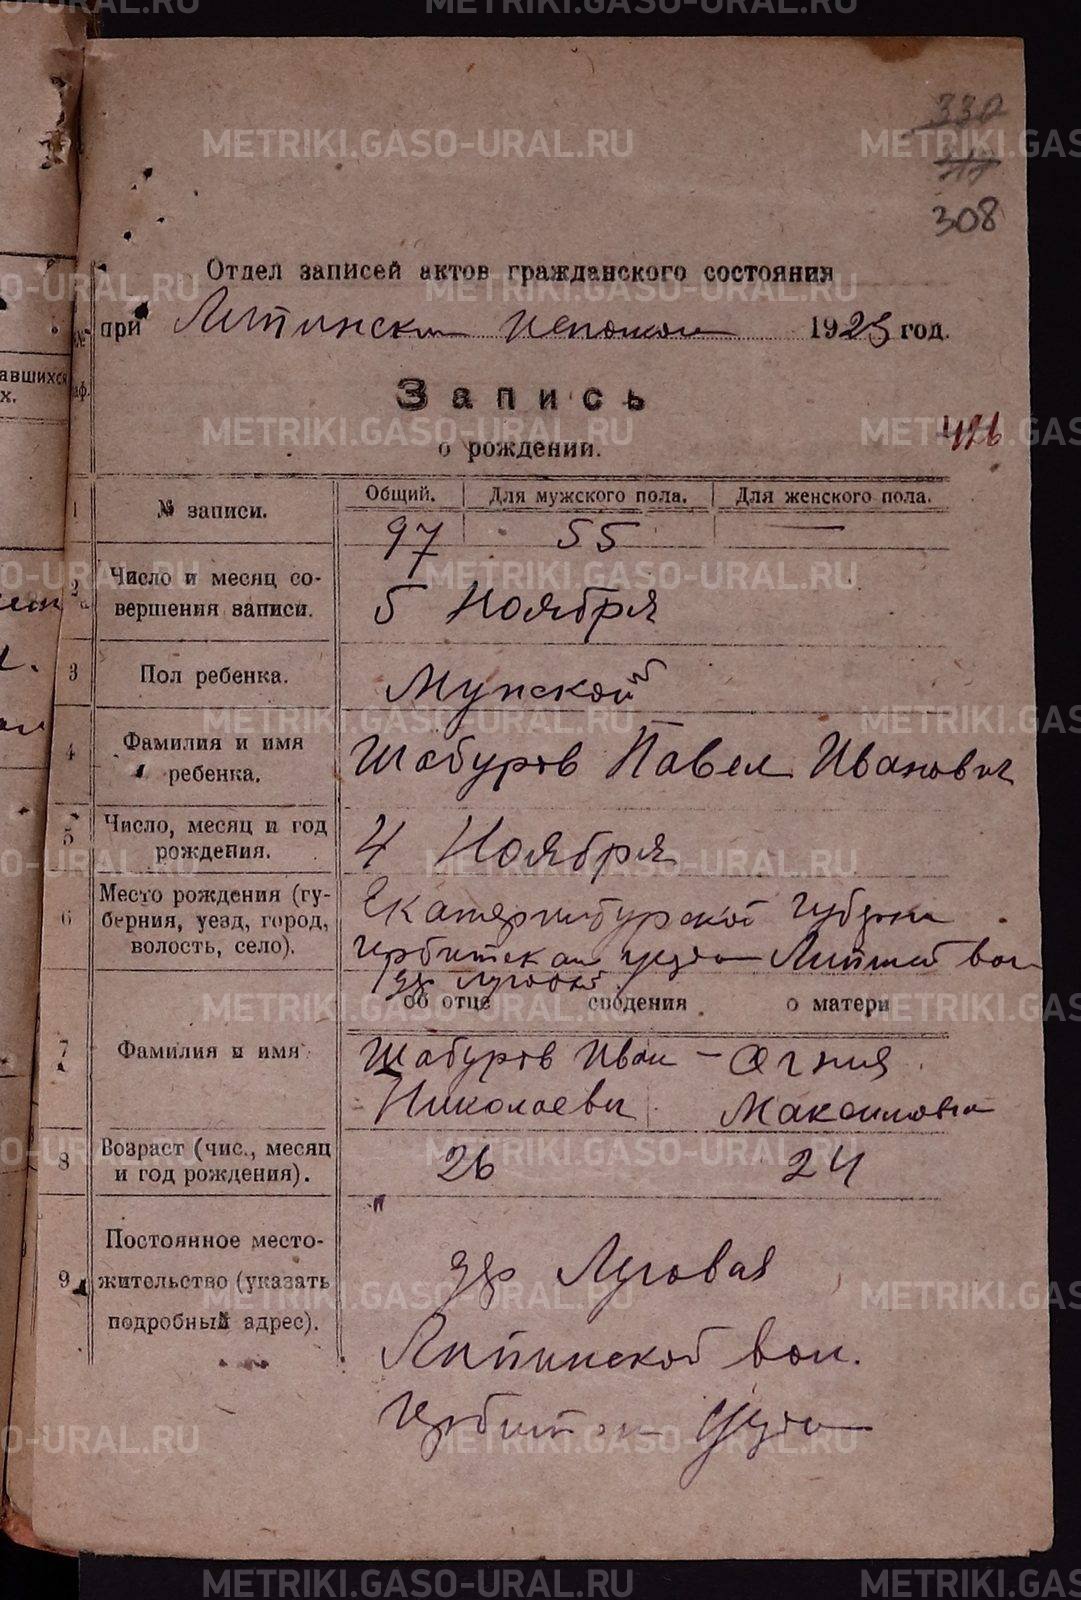 330
317
308
Отдел записей актов гражданского состояния
при Липинском исполкоме 1923 год.
Запись
о рождении.
426
Общий. Для мужского пола. Для женского пола.
1 № записи. 97 55 —
2 Число и месяц со-
вершения записи. 5 Ноября
3 Пол ребенка. Мужской
4 Фамилия и имя
ребенка. Шабуров Павел Иванович
5 Число, месяц и год
рождения. 4 Ноября
6 Место рождения (гу-
берния, уезд, город,
волость, село). Екатеринбургской губернии
Ирбитского уезда Липинской вол
дер Луговой
об отце сведения о матери
7 Фамилия и имя Шабуров Иван — Огния
Николаевич Максимовна
8 Возраст (чис., месяц
и год рождения). 26 24
9 Постоянное место-
жительство (указать
подробный адрес). дер Луговая
Липинской вол.
Ирбитского уезда
METRIKI.GASO-URAL.RU